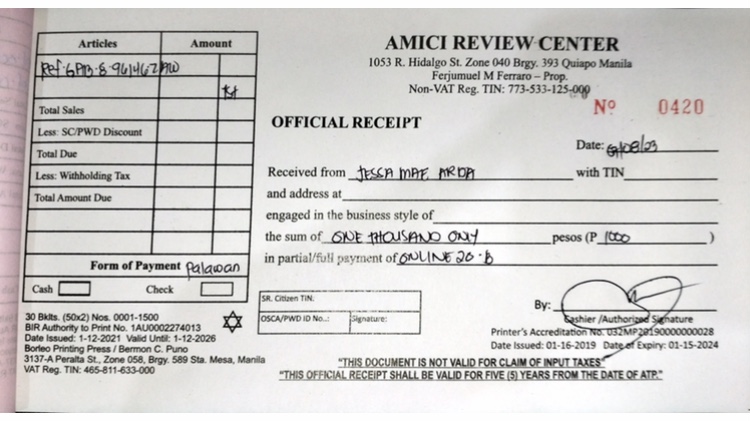 Articles Amount
Ref: GPB-8-961462AW
Total Sales
Less: SC/PWD Discount
Total Due
Less: Withholding Tax
Total Amount Due
Form of Payment Palawan
Cash Check
30 Bklts. (50x2) Nos. 0001-1500
BIR Authority to Print No. 1AU0002274013
Date Issued: 1-12-2021 Valid Until: 1-12-2026
Borleo Printing Press / Bermon C. Puno
3137-A Peralta St., Zone 058, Brgy. 589 Sta. Mesa, Manila
VAT Reg. TIN: 465-811-633-000
AMICI REVIEW CENTER
1053 R. Hidalgo St. Zone 040 Brgy. 393 Quiapo Manila
Ferjumuel M Ferraro – Prop.
Non-VAT Reg. TIN: 773-533-125-000
Nº 0420
OFFICIAL RECEIPT
Date: /08/23
Received from JESSA MAE ARDA with TIN
and address at
engaged in the business style of
the sum of ONE THOUSAND ONLY pesos (P 1000 )
in partial/full payment of ONLINE 20-B
SR. Citizen TIN:
OSCA/PWD ID No..: Signature:
By:
Cashier /Authorized Signature
Printer's Accreditation No. 032MP20190000000028
Date Issued: 01-16-2019 Date of Expiry: 01-15-2024
"THIS DOCUMENT IS NOT VALID FOR CLAIM OF INPUT TAXES"
"THIS OFFICIAL RECEIPT SHALL BE VALID FOR FIVE (5) YEARS FROM THE DATE OF ATP."